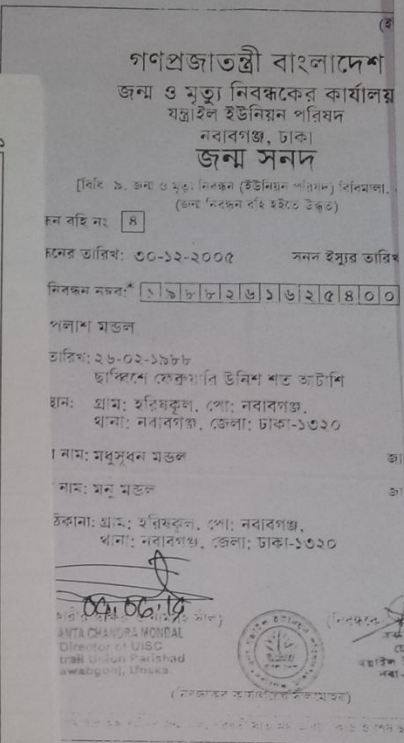 গণপ্রজাতন্ত্রী বাংলাদেশ
জন্ম ও মৃত্যু নিবন্ধকের কার্যালয়
যন্ত্রাইল ইউনিয়ন পরিষদ
নবাবগঞ্জ, ঢাকা।
জন্ম সনদ
[বিধি ৯, জন্ম ও মৃত্যু নিবন্ধন (ইউনিয়ন পরিষদ) বিধিমালা,
(জন্ম নিবন্ধন বহি হইতে উদ্ধৃত)
বহি নং ৪
তারিখ: ৩০-১২-২০০৫ সনদ ইস্যুর তারিখ
নিবন্ধন নম্বর:* ১৯৮৮২৬১৬২৫৪০০
পলাশ মন্ডল
তারিখ: ২৬-০২-১৯৮৮
ছাব্বিশে ফেব্রুয়ারি উনিশ শত আটাশি
গ্রাম: হরিষকুল, পো: নবাবগঞ্জ,
থানা: নবাবগঞ্জ, জেলা: ঢাকা-১৩২০
নাম: মধুসূধন মন্ডল
নাম: মনু মন্ডল
ঠিকানা: গ্রাম: হরিষকুল, পো: নবাবগঞ্জ,
থানা: নবাবগঞ্জ, জেলা: ঢাকা-১৩২০
CHANDRA MONDAL
Director of UISC
Union Parishad